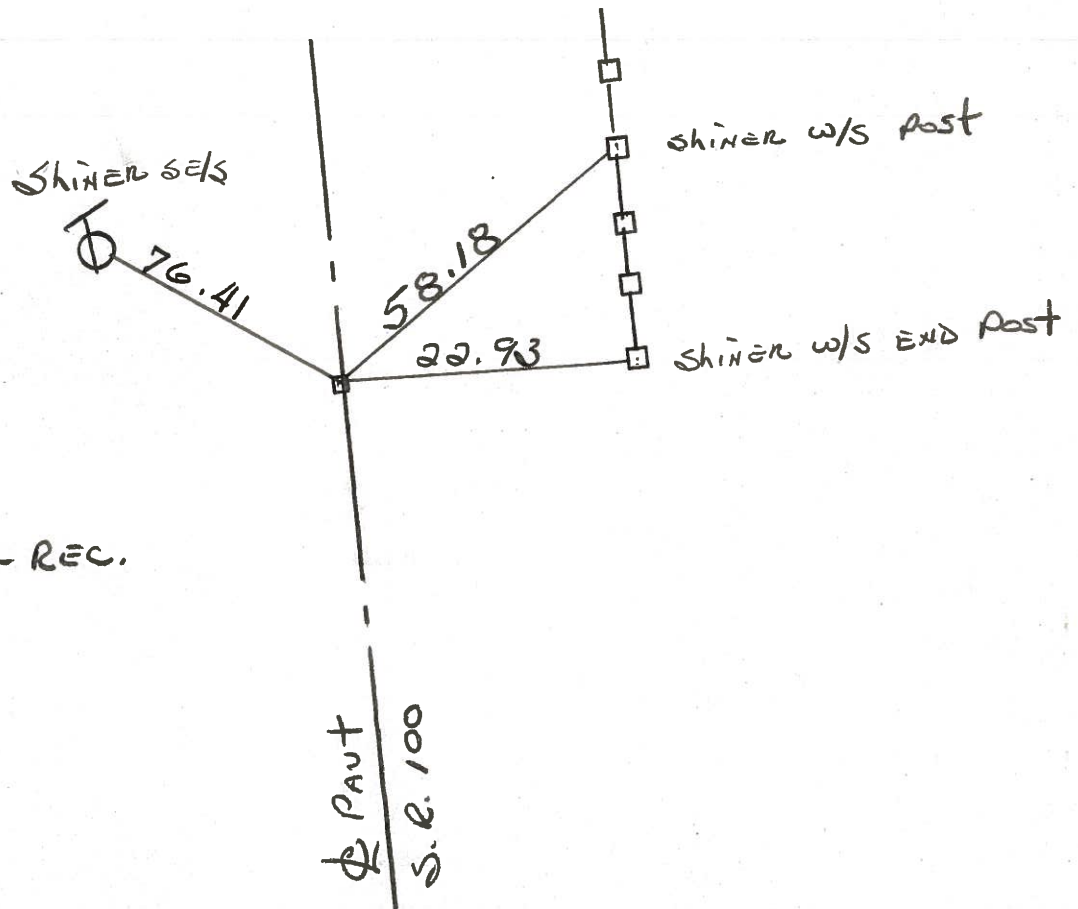 Shiner w/s Post
Shiner SE/S
76.41
58.18
22.93
Shiner w/s END Post
- REC.
℄ PAVT
S.R. 100